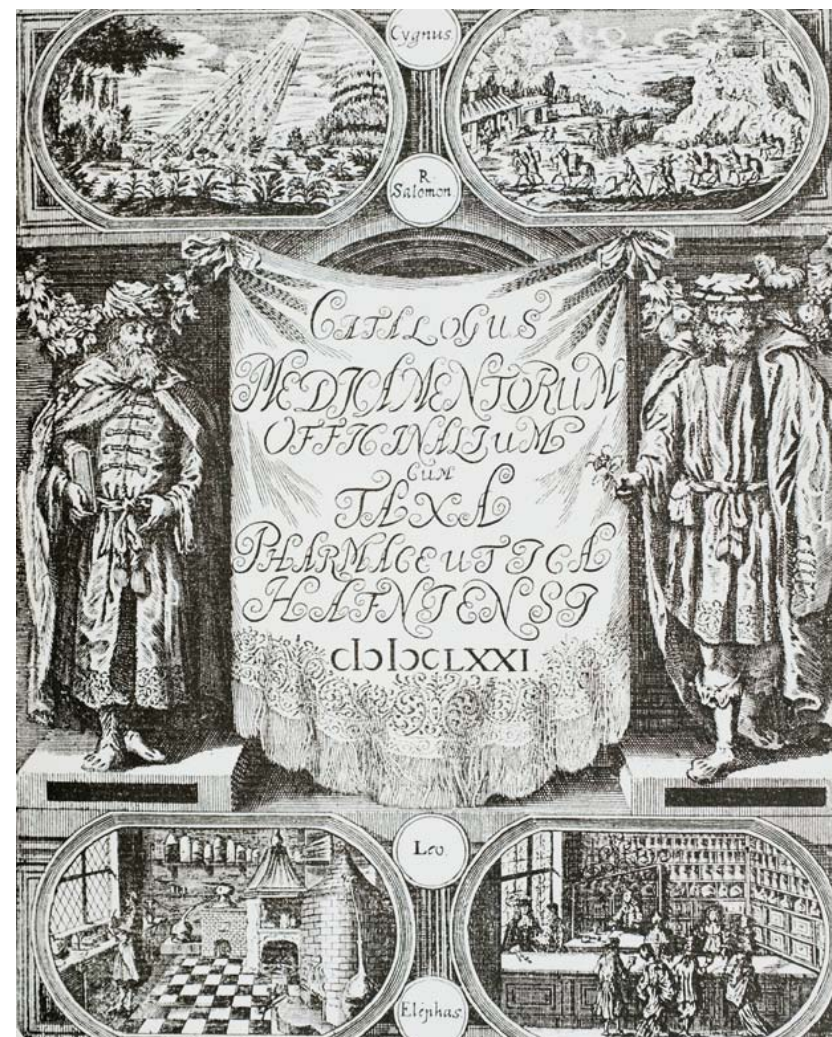 Cygnus.
R.
Salomon.
CATALOGUS
MEDICAMENTORUM
OFFICINALIUM
CUM
TAXA
PHARMACEUTICA
HAFNIENSI
cIɔ Iɔc LXXI
Leo.
Elephas